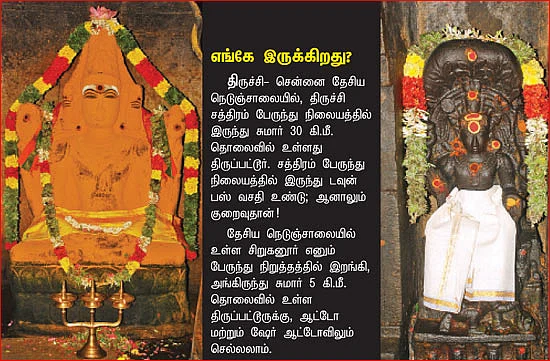 எங்கே இருக்கிறது?
திருச்சி- சென்னை தேசிய
நெடுஞ்சாலையில், திருச்சி
சத்திரம் பேருந்து நிலையத்தில்
இருந்து சுமார் 30 கி.மீ.
தொலைவில் உள்ளது
திருப்பட்டூர். சத்திரம் பேருந்து
நிலையத்தில் இருந்து டவுன்
பஸ் வசதி உண்டு; ஆனாலும்
குறைவுதான்!
தேசிய நெடுஞ்சாலையில்
உள்ள சிறுகனூர் எனும்
பேருந்து நிறுத்தத்தில் இறங்கி,
அங்கிருந்து சுமார் 5 கி.மீ.
தொலைவில் உள்ள
திருப்பட்டூருக்கு, ஆட்டோ
மற்றும் ஷேர் ஆட்டோவிலும்
செல்லலாம்.